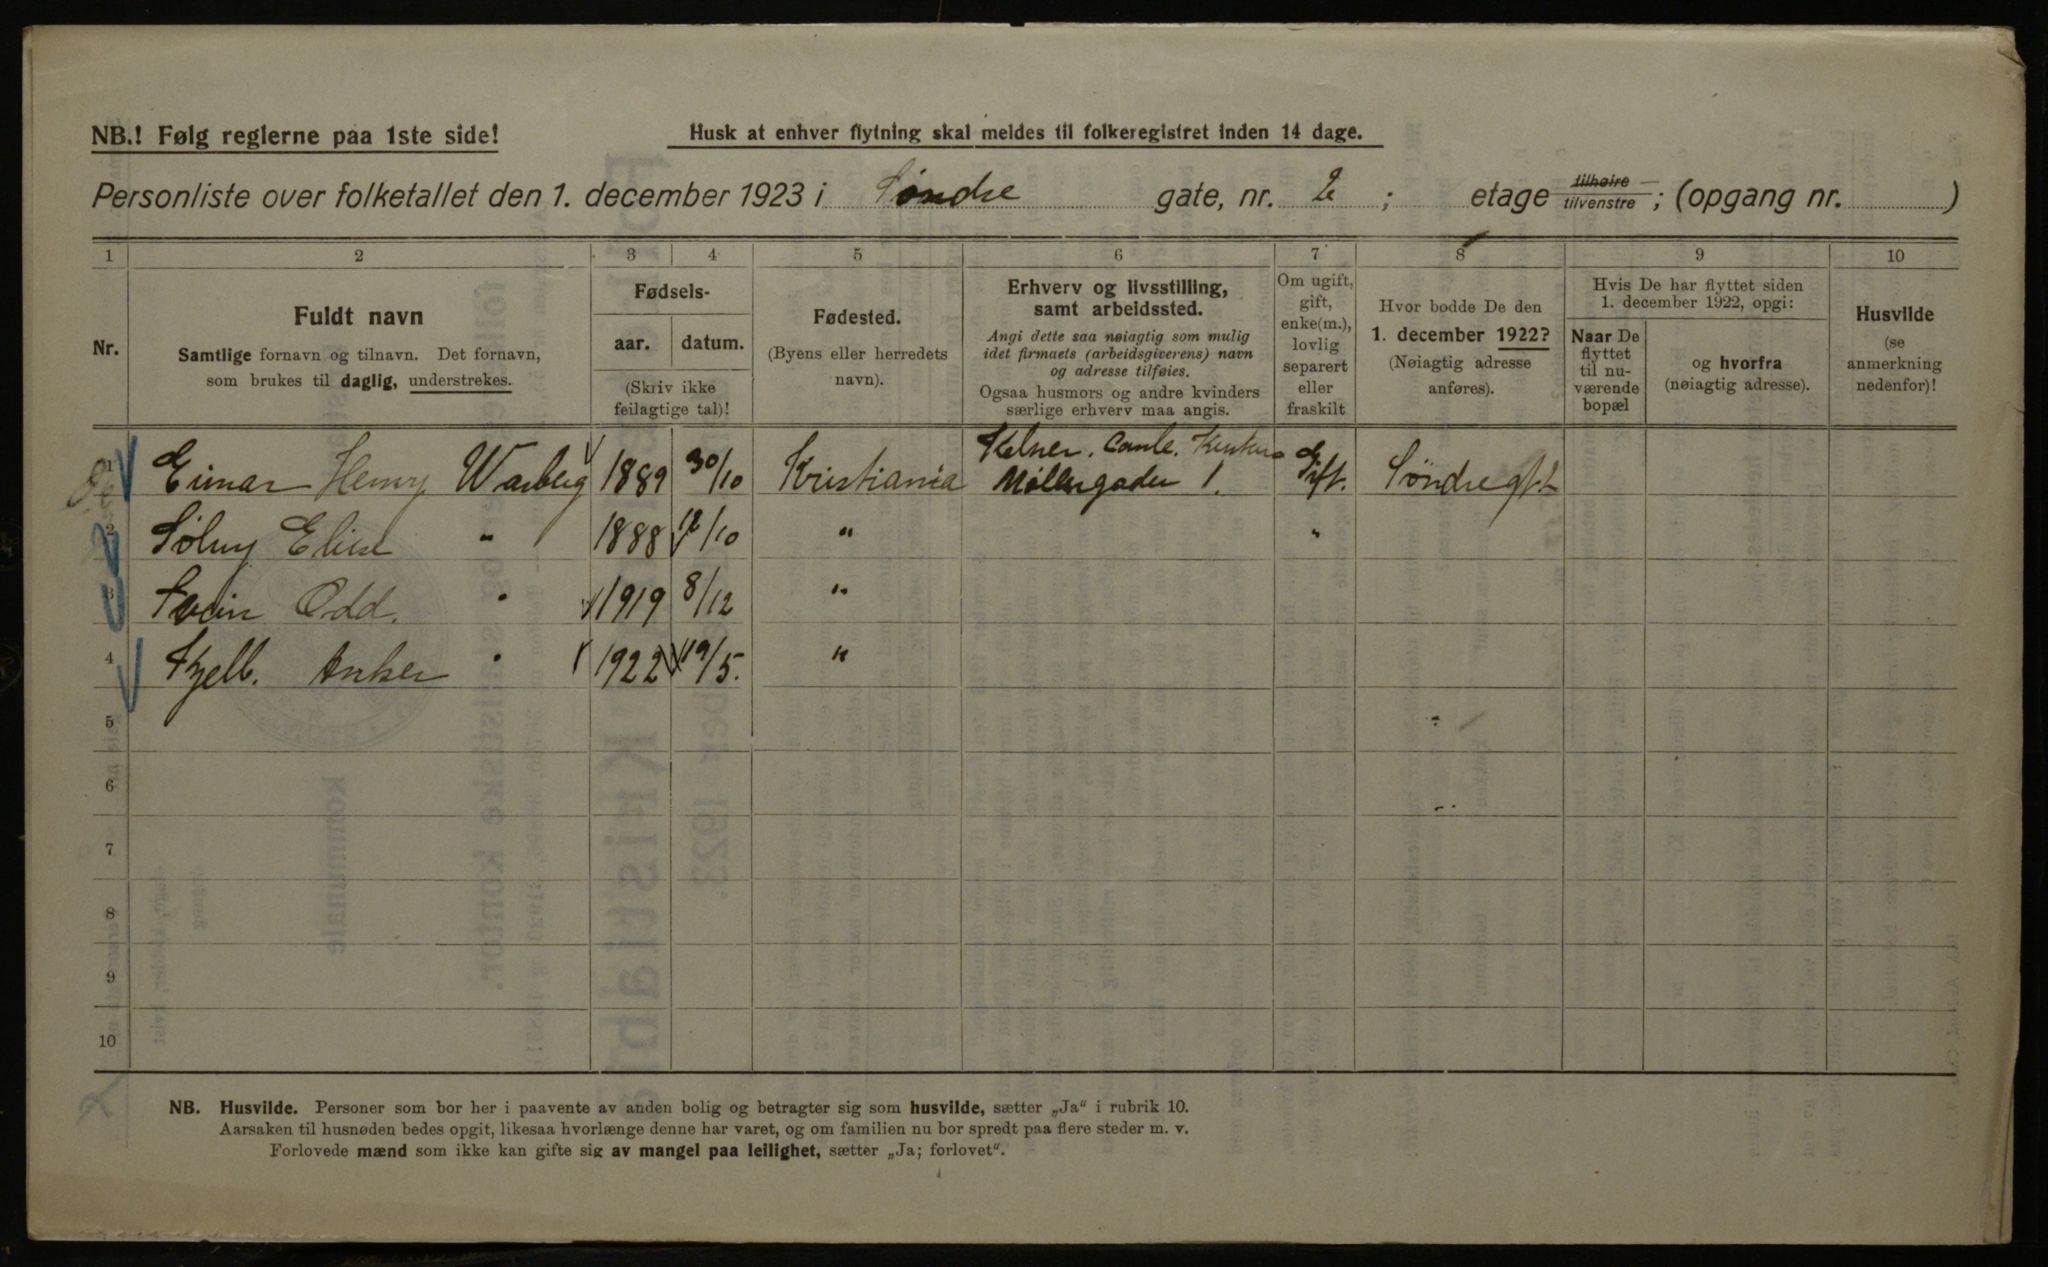 NB.! Følg reglerne paa 1ste side!
Husk at enhver flytning skal meldes til folkeregistret inden 14 dage.
Personliste over folketallet den 1. december 1923 i Søndre gate, nr. 2; etage tilhøire / tilvenstre; (opgang nr. )
1 2 3 4 5 6 7 8 9 10
Nr.
Fuldt navn
Samtlige fornavn og tilnavn. Det fornavn,
som brukes til daglig, understrekes.
Fødsels-
aar.
datum.
(Skriv ikke
feilagtige tal)!
Fødested.
(Byens eller herredets
navn).
Erhverv og livsstilling,
samt arbeidssted.
Angi dette saa nøiagtig som mulig
idet firmaets (arbeidsgiverens) navn
og adresse tilføies.
Ogsaa husmors og andre kvinders
særlige erhverv maa angis.
Om ugift,
gift,
enke(m.),
lovlig
separert
eller
fraskilt
Hvor bodde De den
1. december 1922?
(Nøiagtig adresse
anføres).
Hvis De har flyttet siden
1. december 1922, opgi:
Naar De
flyttet
til nu-
værende
bopæl
og hvorfra
(nøiagtig adresse).
Husvilde
(se
anmerkning
nedenfor)!
1 Einar Henry Warberg 1889 30/10 Kristiania Kelner. Møllergaden 1. Gift. Søndre gt 2
2 Solvey Elise " 1888 12/10 " "
3 Svein Odd. " 1919 8/12 "
4 Kjell. Anker " 1922 19/5. "
5
6
7
8
9
10
NB. Husvilde. Personer som bor her i paavente av anden bolig og betragter sig som husvilde, sætter „Ja“ i rubrik 10.
Aarsaken til husnøden bedes opgit, likesaa hvorlænge denne har varet, og om familien nu bor spredt paa flere steder m. v.
Forlovede mænd som ikke kan gifte sig av mangel paa leilighet, sætter „Ja; forlovet“.